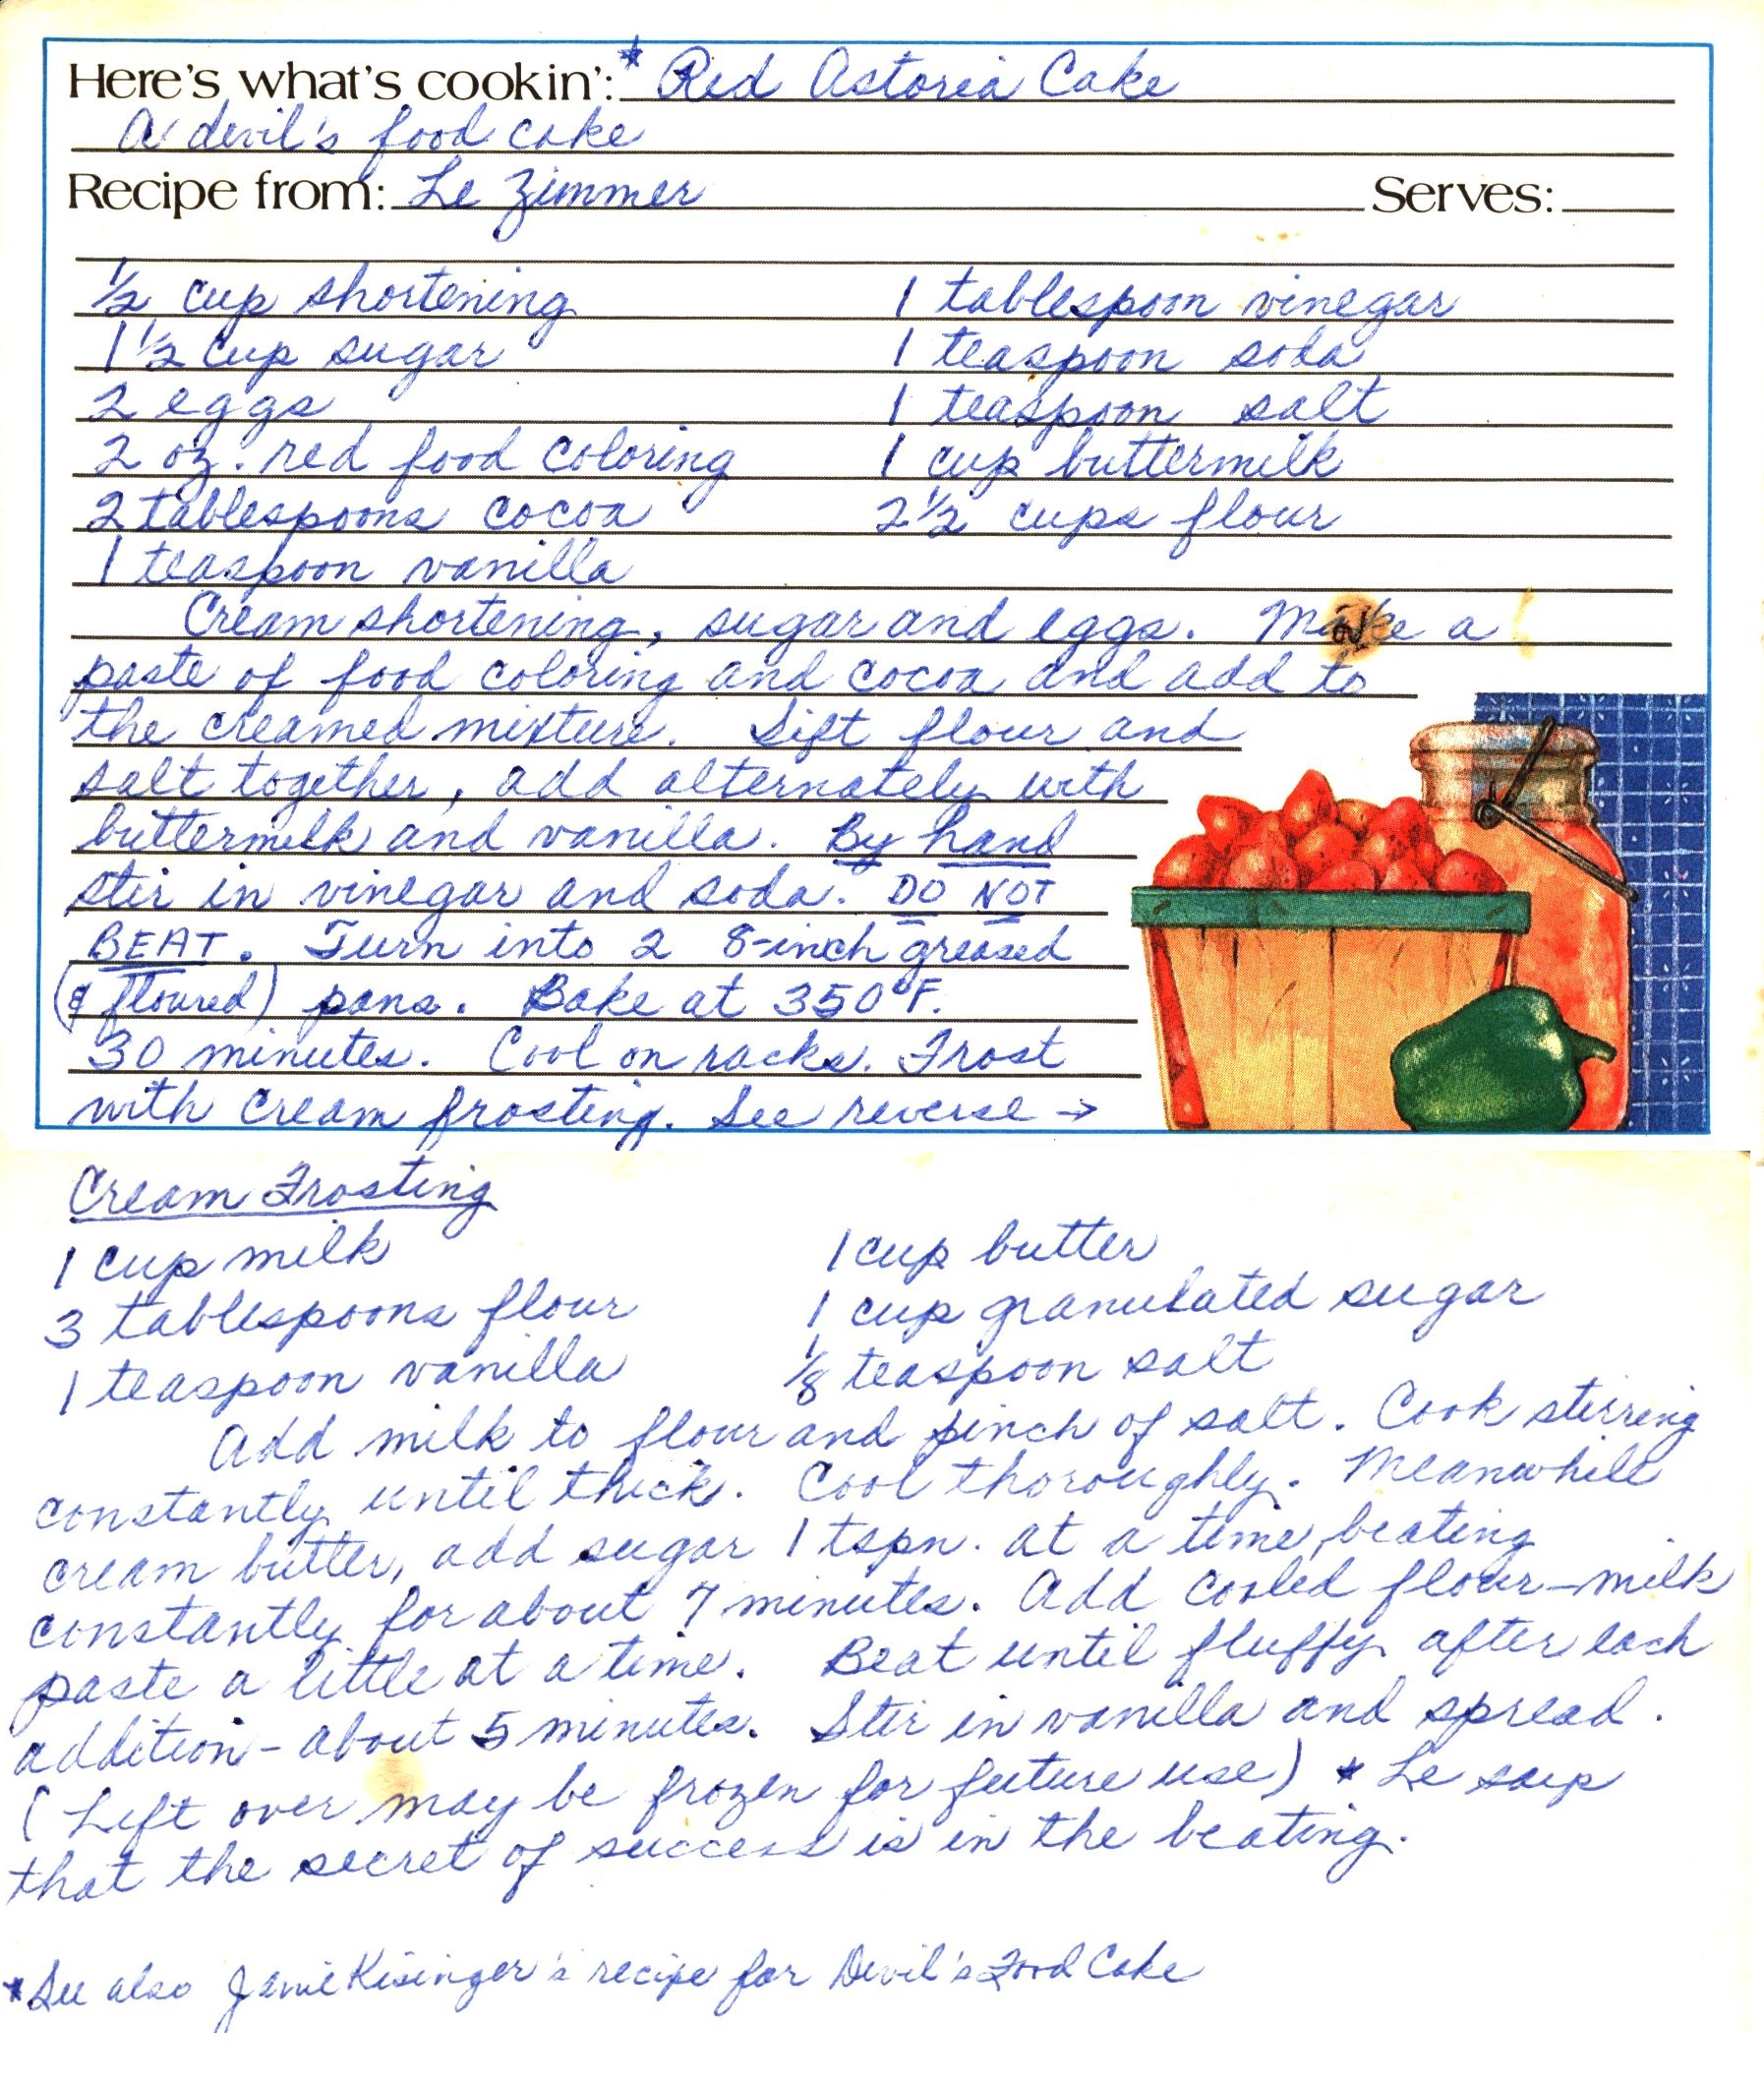 Here's what's cookin': * Red Astoria Cake
A devil's food cake
Recipe from: Le Zimmer Serves:
1/2 cup shortening 1 tablespoon vinegar
1 1/2 cup sugar 1 teaspoon soda
2 eggs 1 teaspoon salt
2 oz. red food coloring 1 cup buttermilk
2 tablespoons cocoa 2 1/2 cups flour
1 teaspoon vanilla
Cream shortening, sugar and eggs. Make a
paste of food coloring and cocoa and add to
the creamed mixture. Sift flour and
salt together, add alternately with
buttermilk and vanilla. By hand
stir in vinegar and soda. DO NOT
BEAT. Turn into 2 8-inch greased
(& floured) pans. Bake at 350°F.
30 minutes. Cool on racks. Frost
with cream frosting. See reverse →
Cream Frosting
1 cup milk 1 cup butter
3 tablespoons flour 1 cup granulated sugar
1 teaspoon vanilla 1/8 teaspoon salt
Add milk to flour and pinch of salt. Cook stirring
constantly until thick. Cool thoroughly. Meanwhile
cream butter, add sugar 1 tspn. at a time, beating
constantly for about 7 minutes. Add cooled flour-milk
paste a little at a time. Beat until fluffy after each
addition - about 5 minutes. Stir in vanilla and spread.
(Left over may be frozen for future use) * Le says
that the secret of success is in the beating.
* See also Janie Kisinger's recipe for Devil's Food Cake